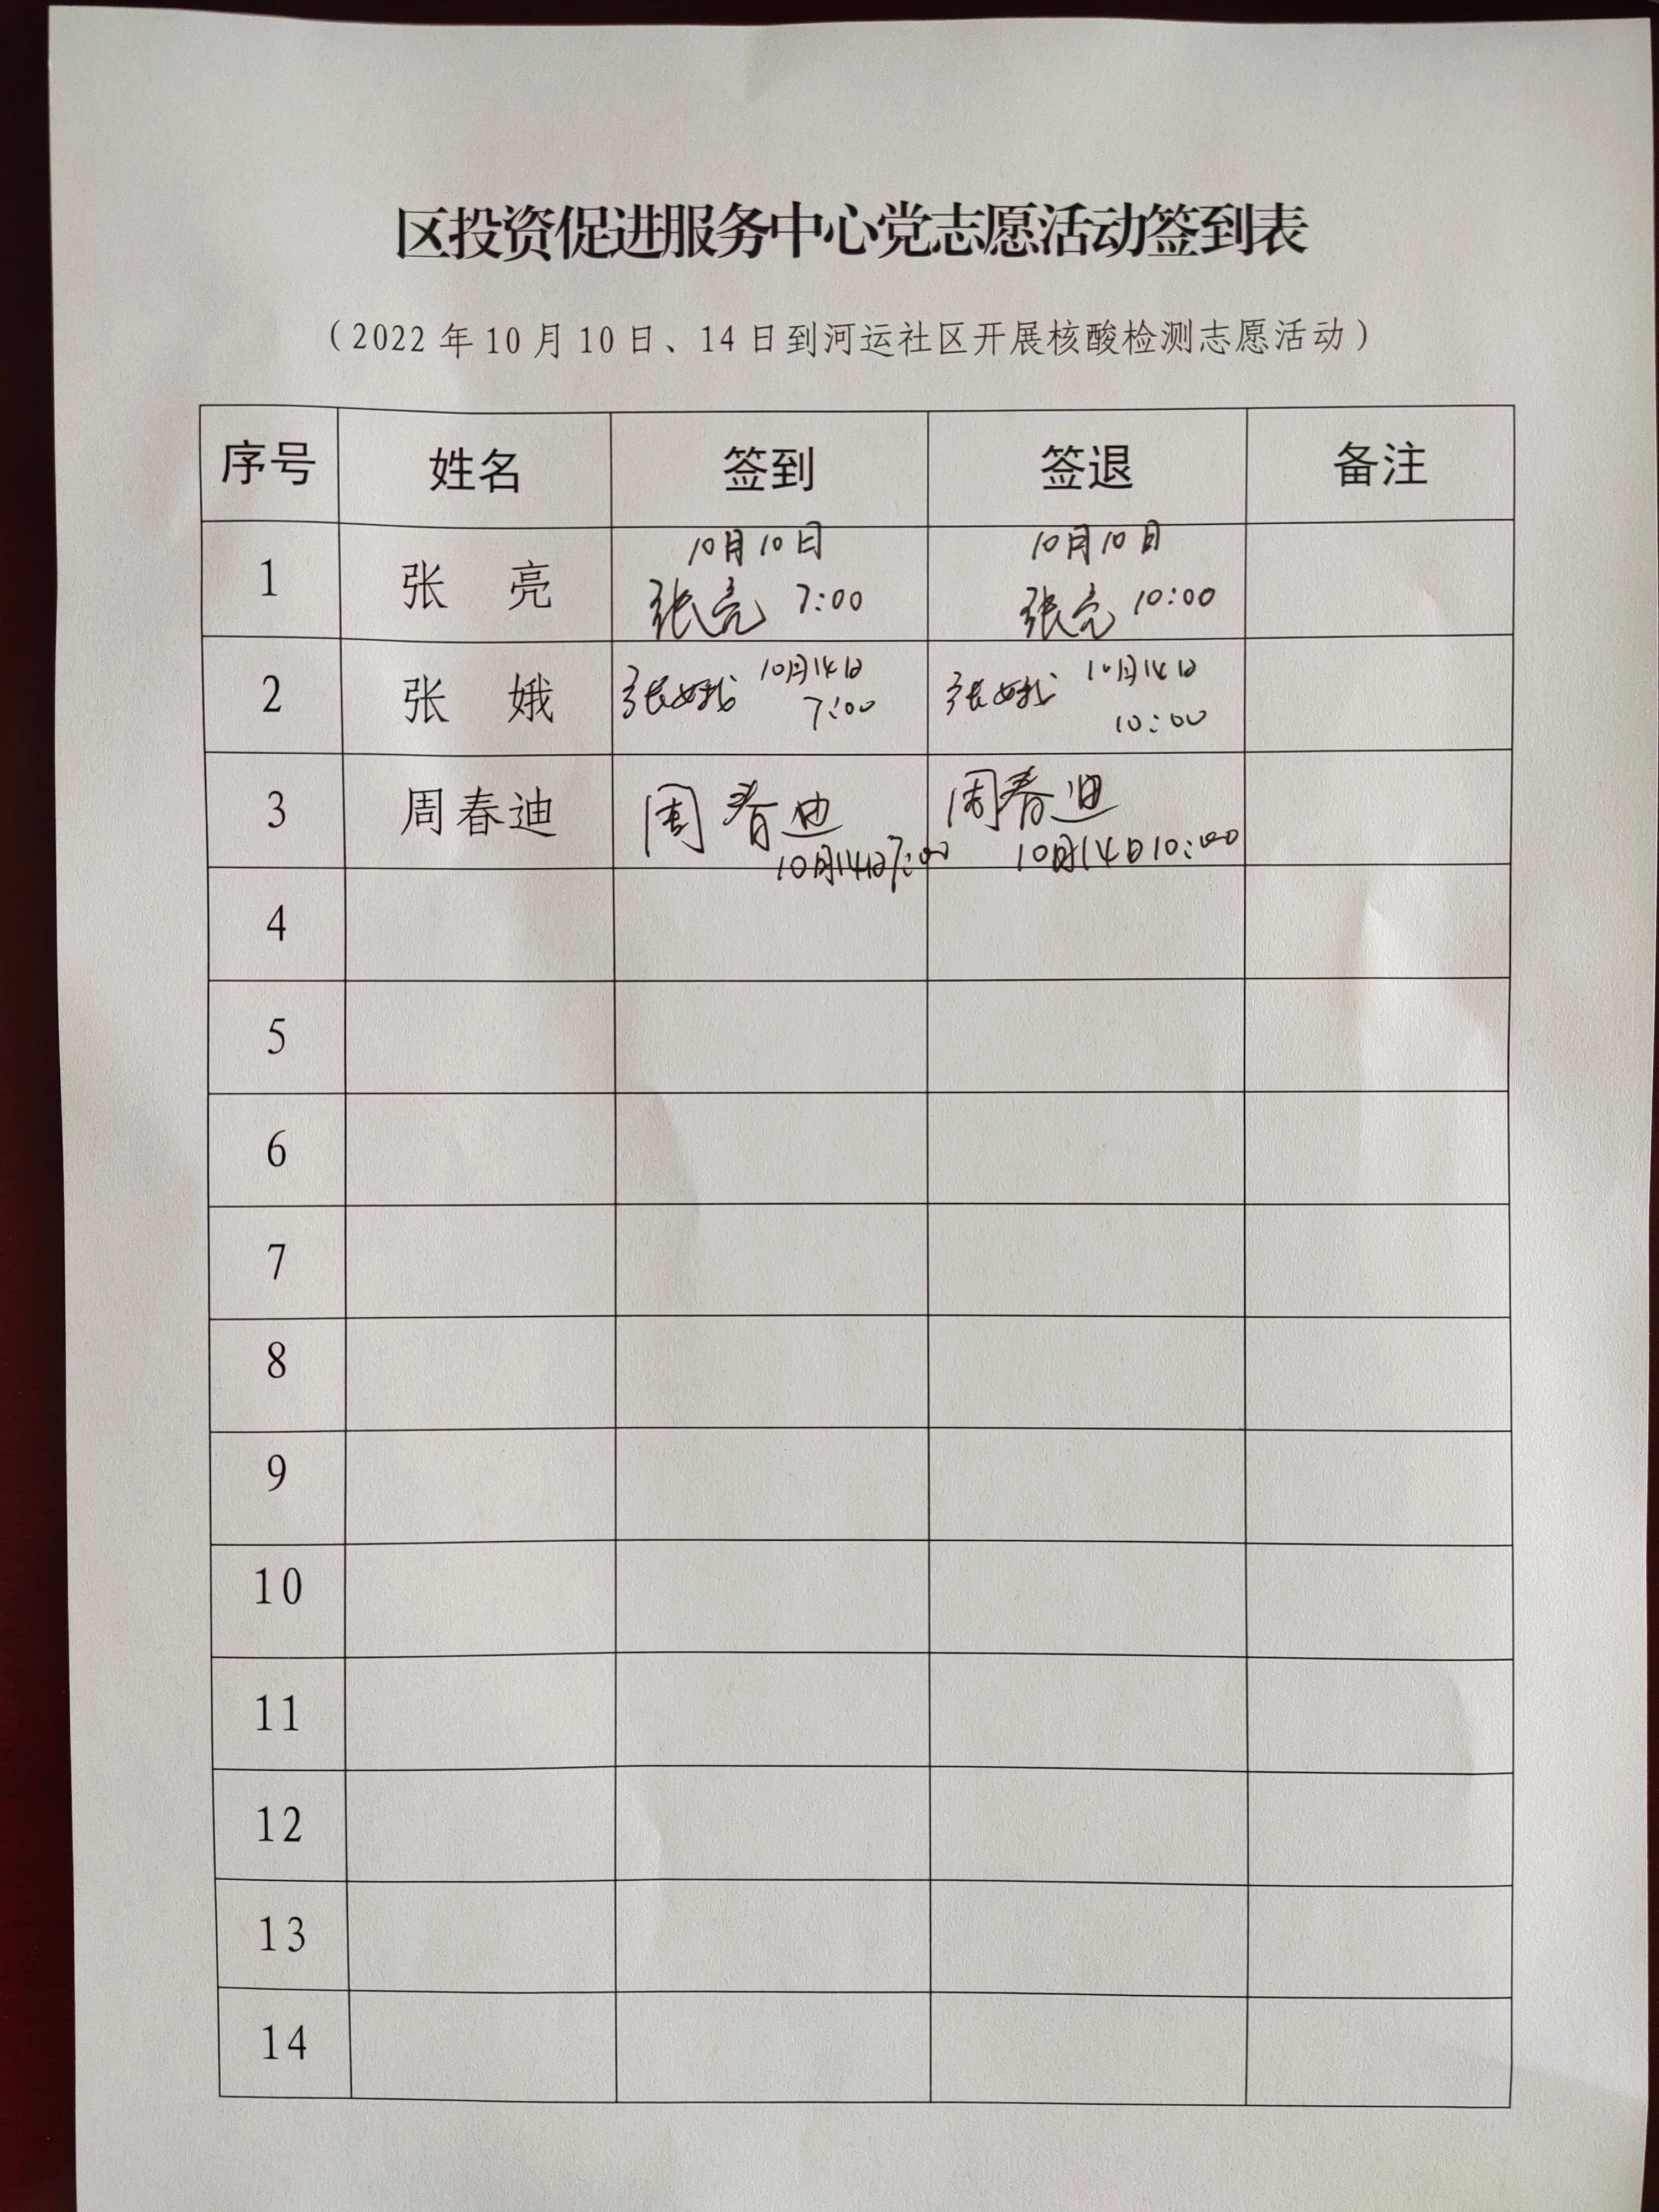 区投资促进服务中心党志愿活动签到表
（2022年10月10日、14日到河运社区开展核酸检测志愿活动）
序号 姓名 签到 签退 备注
10月10日 10月10日
1 张 亮 张亮 7:00 张亮 10:00
2 张 娥 张娥 10月14日 张娥 10月14日
7:00 10:00
3 周春迪 周春迪 周春迪
10月14日7:00 10月14日10:00
4
5
6
7
8
9
10
11
12
13
14